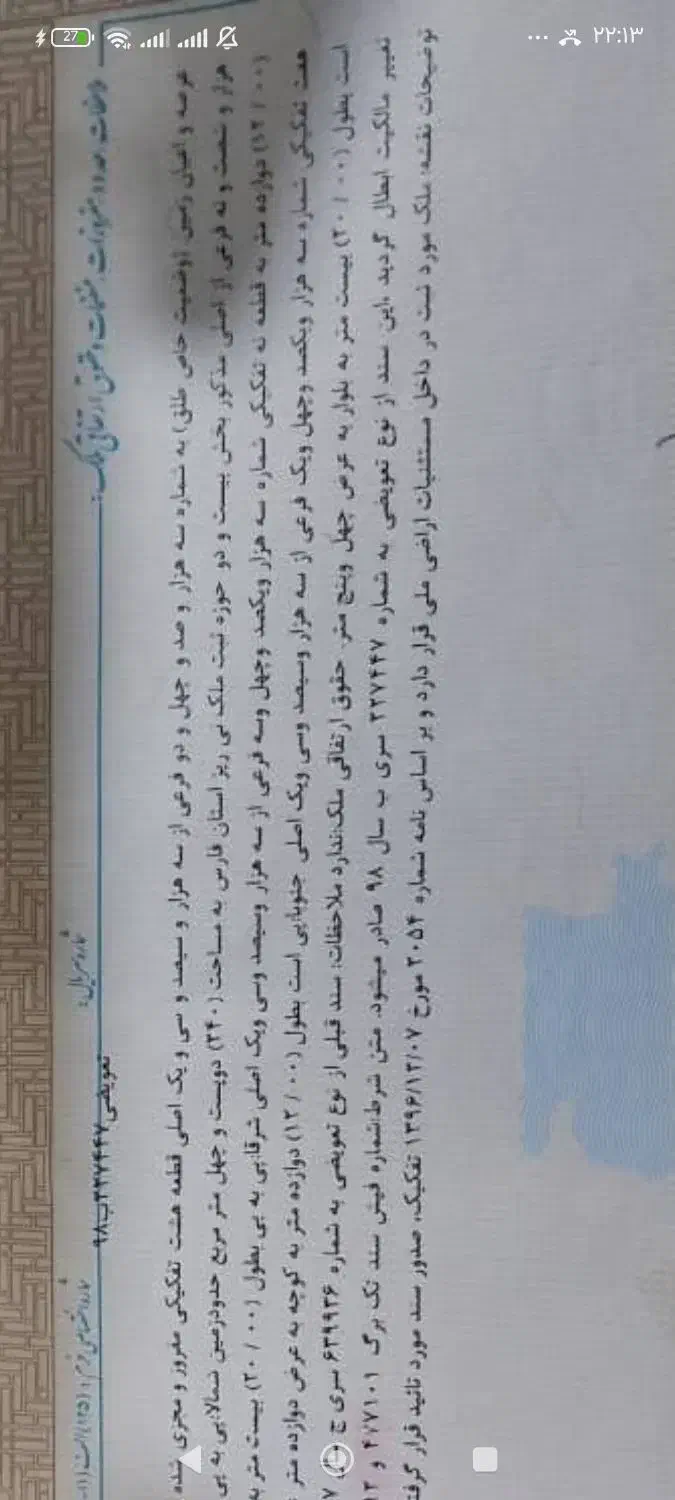 ۲۲:۱۳
27
مالک:
شماره سریال:
تعویضی۲۲۷۴۴۷ب۹۸
عرصه و اعیان زمین (وضعیت خاص طلق) به شماره سه هزار و صد و چهل و دو فرعی از سه هزار و سیصد و سی و یک اصلی قطعه هشت تفکیکی مفروز و مجزی شده
هزار و شصت و نه فرعی از اصلی مذکور بخش بیست و دو حوزه ثبت ملک نی ریز استان فارس به مساحت (۲۴۰) دویست و چهل متر مربع حدودزمین شمالا:پی به پی
(۱۲/۰۰) دوازده متر به قطعه نه تفکیکی شماره سه هزار ویکصد وچهل وسه فرعی از سه هزار وسیصد وسی ویک اصلی شرقا:پی به پی بطول (۲۰/۰۰) بیست متر به
هفت تفکیکی شماره سه هزار ویکصد وچهل ویک فرعی از سه هزار وسیصد وسی ویک اصلی جنوبا:پی است بطول (۱۲/۰۰) دوازده متر به کوچه به عرض دوازده متر
است بطول (۲۰/۰۰) بیست متر به بلوار به عرض چهل وپنج متر. حقوق ارتفاقی ملک:ندارد ملاحظات: سند قبلی از نوع تعویضی به شماره ۶۳۹۹۳۶ سری ج سال ۷
تغییر مالکیت ابطال گردید ،این سند از نوع تعویضی به شماره ۲۲۷۴۴۷ سری ب سال ۹۸ صادر میشود. متن شرط:شماره فیش سند تک برگ ۴/۷۷۱۰۱ و ۱۲
توضیحات نقشه: ملک مورد ثبت در داخل مستثنیات اراضی ملی قرار دارد و بر اساس نامه شماره ۲۰۵۴ مورخ ۱۳۹۶/۱۲/۰۷ تفکیک، صدور سند مورد تائید قرار گرفت